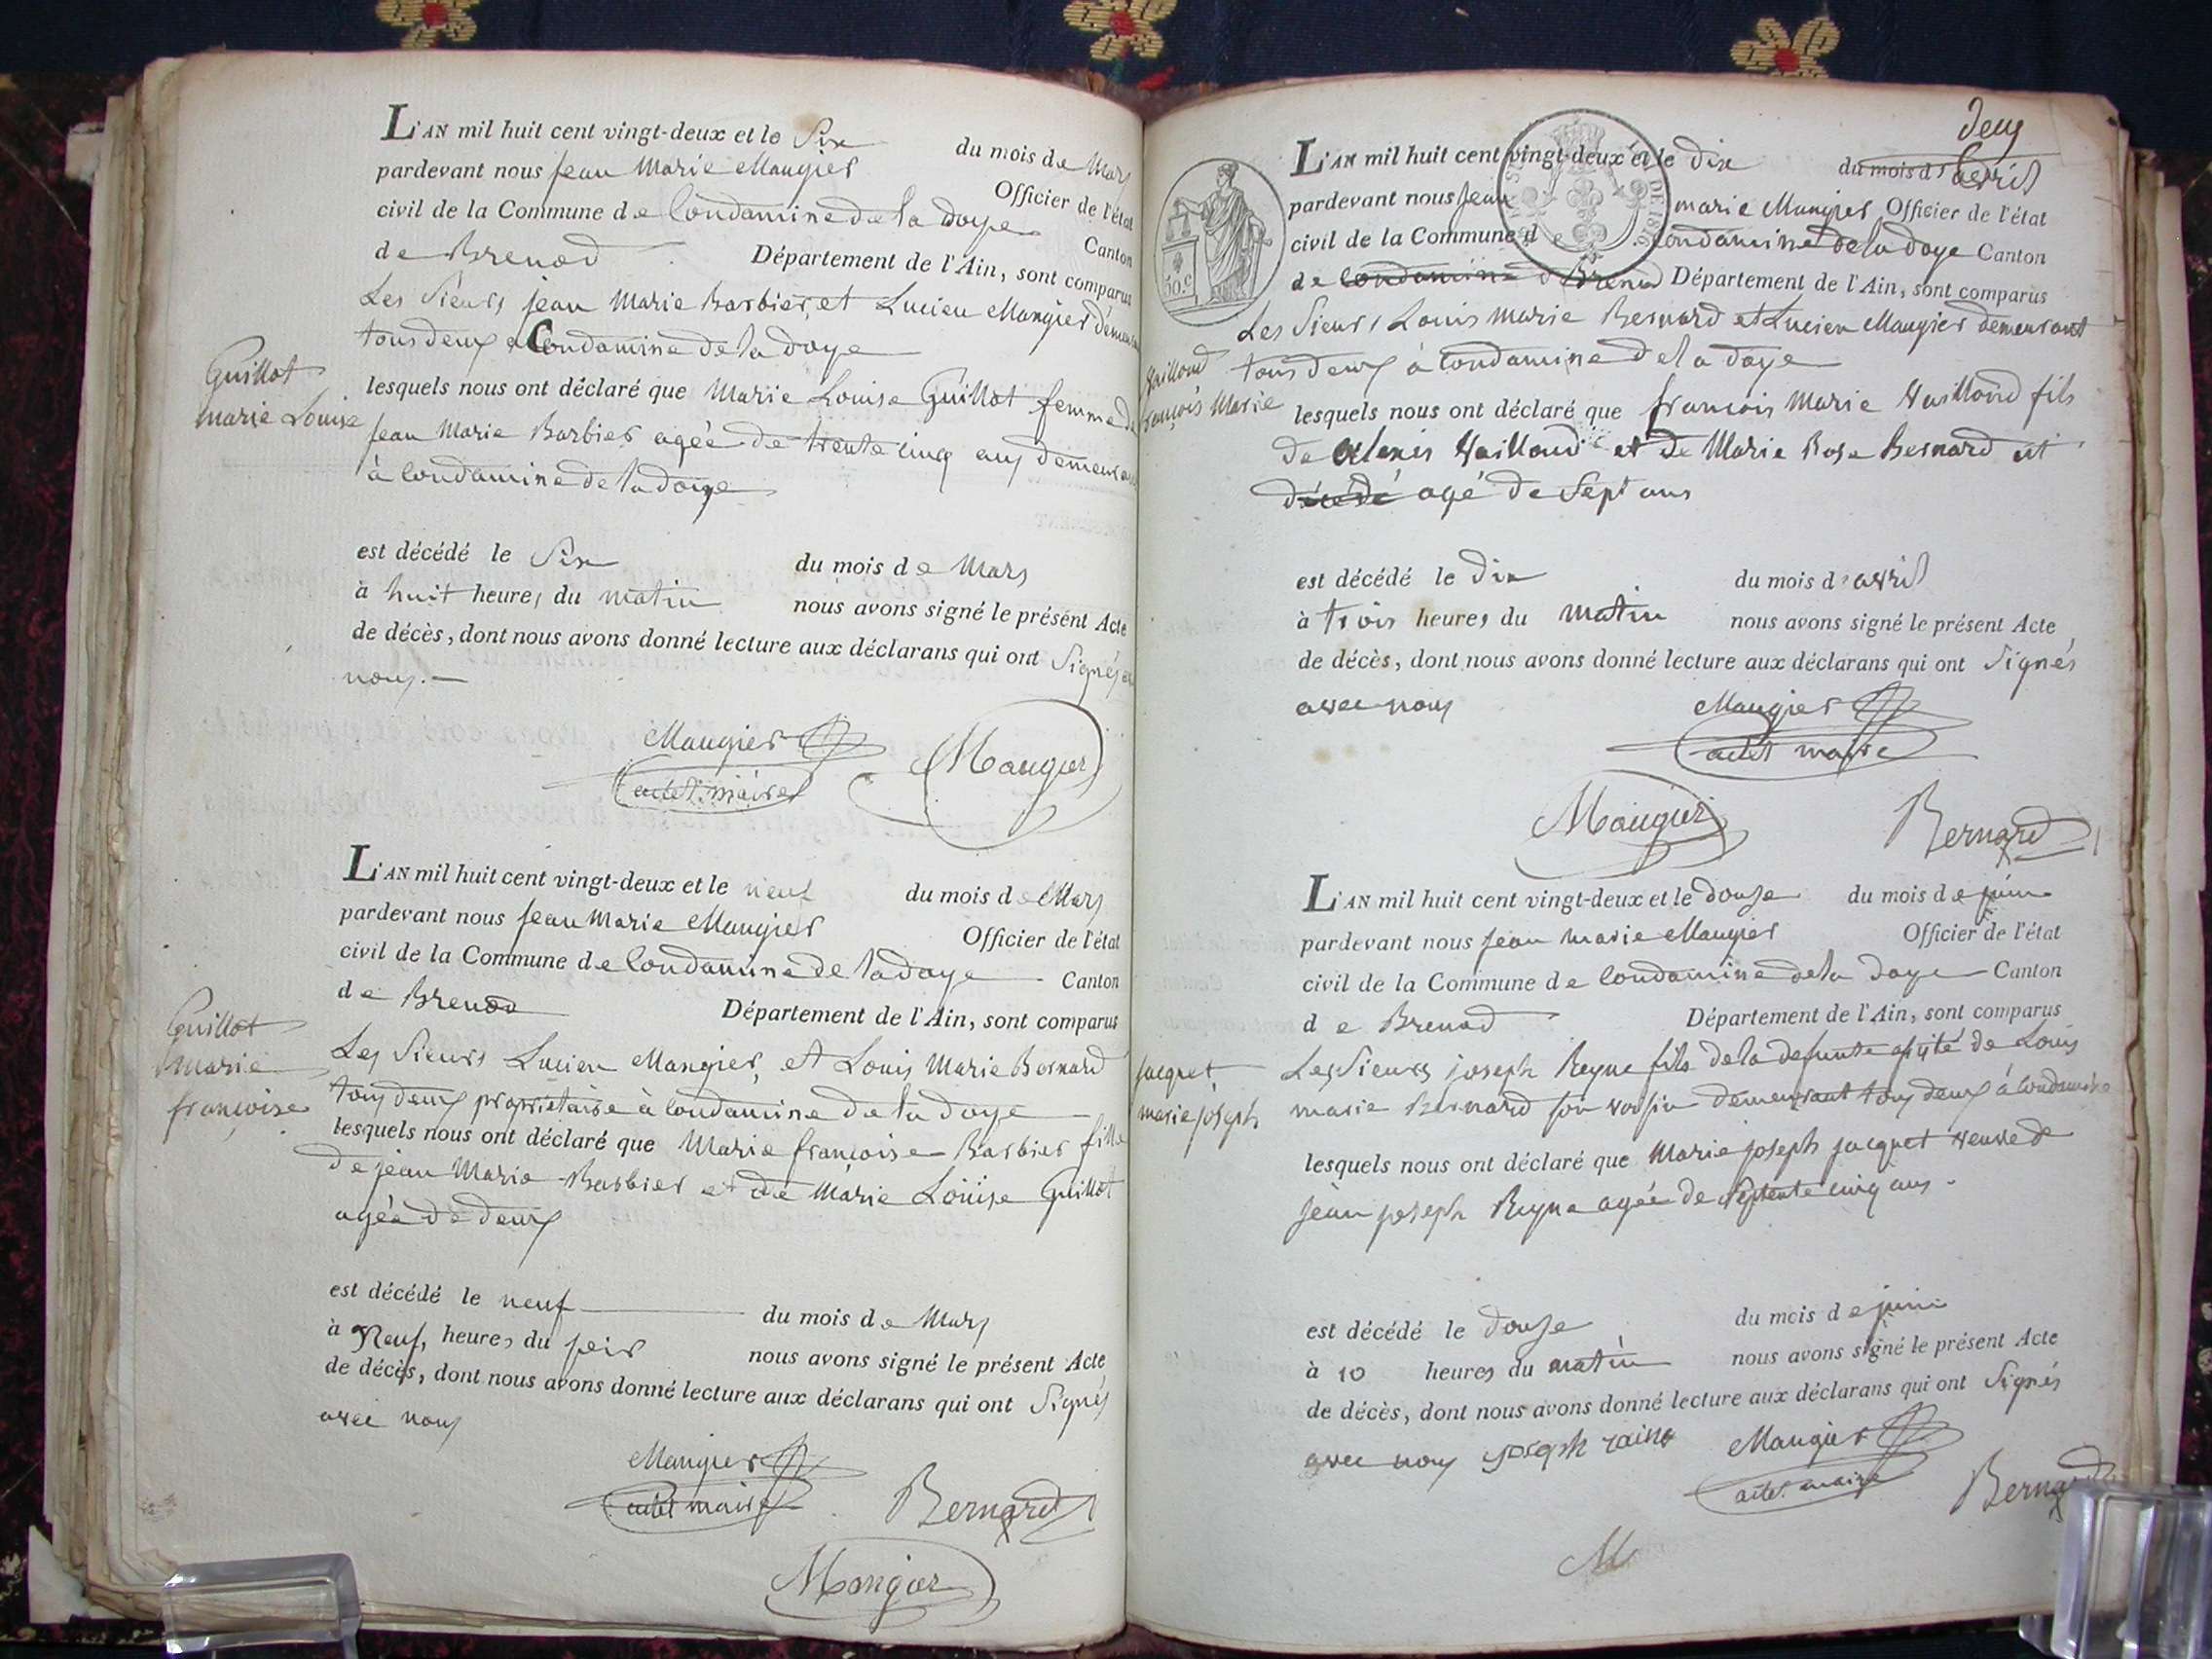 L'AN mil huit cent vingt-deux et le Six du mois de Mars
pardevant nous Jean Marie Maugier Officier de l'état
civil de la Commune de Condamine de la doye Canton
de Brenod Département de l'Ain, sont comparus
Les Sieurs jean Marie Barbier, et Lucien Maugier
tous deux a Condamine de la doye
Guillot
marie Louise
lesquels nous ont déclaré que Marie Louise Guillot femme de
Jean Marie Barbier agée de trente cinq ans
à Condamine de la doye
est décédé le Six du mois de Mars
à huit heures du matin nous avons signé le présent Acte
de décès, dont nous avons donné lecture aux déclarans qui ont Signés
nous.
Maugier
adet. maire
Maugier
L'AN mil huit cent vingt-deux et le neuf du mois de Mars
pardevant nous Jean Marie Maugier Officier de l'état
civil de la Commune de Condamine de la doye Canton
de Brenod Département de l'Ain, sont comparus
Les Sieurs Lucien Maugier, et Louis Marie Bernard
tous deux propriétaire à Condamine de la doye
Guillot
marie
françoise
lesquels nous ont déclaré que Marie françoise Barbier fille
de jean Marie Barbier et de Marie Louise Guillot
agée de deux
est décédé le neuf du mois de Mars
à Neuf heures du soir nous avons signé le présent Acte
de décès, dont nous avons donné lecture aux déclarans qui ont Signés
avec nous
Maugier
adet maire
Bernard
Maugier
deux
L'AN mil huit cent vingt-deux et le dix du mois d'avril
pardevant nous Jean marie Maugier Officier de l'état
civil de la Commune de Condamine de la doye Canton
de Condamine d Brenod Département de l'Ain, sont comparus
50.c
DE 1816
Les Sieurs Louis Marie Bernard et Lucien Maugier demeurant
tous deux à Condamine de la doye
Vailloud
françois Marie
lesquels nous ont déclaré que françois Marie Vailloud fils
de Alexis Vailloud et de Marie Rose Bernard est
décédé agé de Sept ans
est décédé le dix du mois d'avril
à trois heures du matin nous avons signé le présent Acte
de décès, dont nous avons donné lecture aux déclarans qui ont Signés
avec nous
Maugier
adet maire
Maugier
Bernard
L'AN mil huit cent vingt-deux et le douze du mois de juin
pardevant nous Jean Marie Maugier Officier de l'état
civil de la Commune de Condamine de la doye Canton
de Brenod Département de l'Ain, sont comparus
Les Sieurs joseph Reyne fils de la defunte de Louis
marie Bernard son voisin demeurant tous deux à Condamine
jacquet
marie joseph
lesquels nous ont déclaré que Marie joseph jacquet veuve de
jean joseph Reyne agée de septente cinq ans.
est décédé le douze du mois de juin
à 10 heures du matin nous avons signé le présent Acte
de décès, dont nous avons donné lecture aux déclarans qui ont Signés
avec nous joseph raine
Maugier
adet. maire
Bernard
M